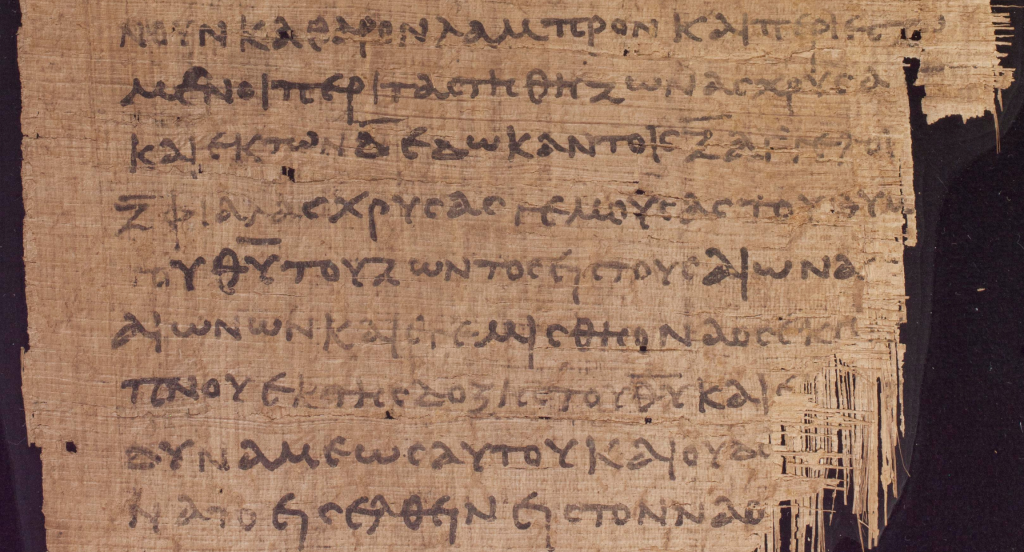 ΝΟΥΝΚΑΘΑΡΟΝΛΑΜΠΡΟΝΚΑΙΠΕΡΙΕ
ΜΕΝΟΙΠΕΡΙΤΑϹΤΗΘΗΖΩΝΑϹΧΡΥϹΑ
ΚΑΙΕΚΤΩΝΔ̅ΕΔΩΚΑΝΤΟΙϹΖ̅ΑΓΓΕΛΟΙ
Ζ̅ΦΙΑΛΑϹΧΡΥϹΑϹΓΕΜΟΥϹΑϹΤΟΥΘΥΜ
ΟΥΘ̅Υ̅ΤΟΥΖΩΝΤΟϹΕΙϹΤΟΥϹΑΙΩΝΑ
ΑΙΩΝΩΝΚΑΙΕΓΕΜΙϹΘΗΟΝΑΟϹΕΚ
ΠΝΟΥΕΚΤΗϹΔΟΞΗϹΤΟΥΘ̅Υ̅ΚΑΙΕ
ΔΥΝΑΜΕΩϹΑΥΤΟΥΚΑΙΟΥΔ
ΝΑΤΟΕΙϹΕΛΘΕΙΝΕΙϹΤΟΝΝΑΟ